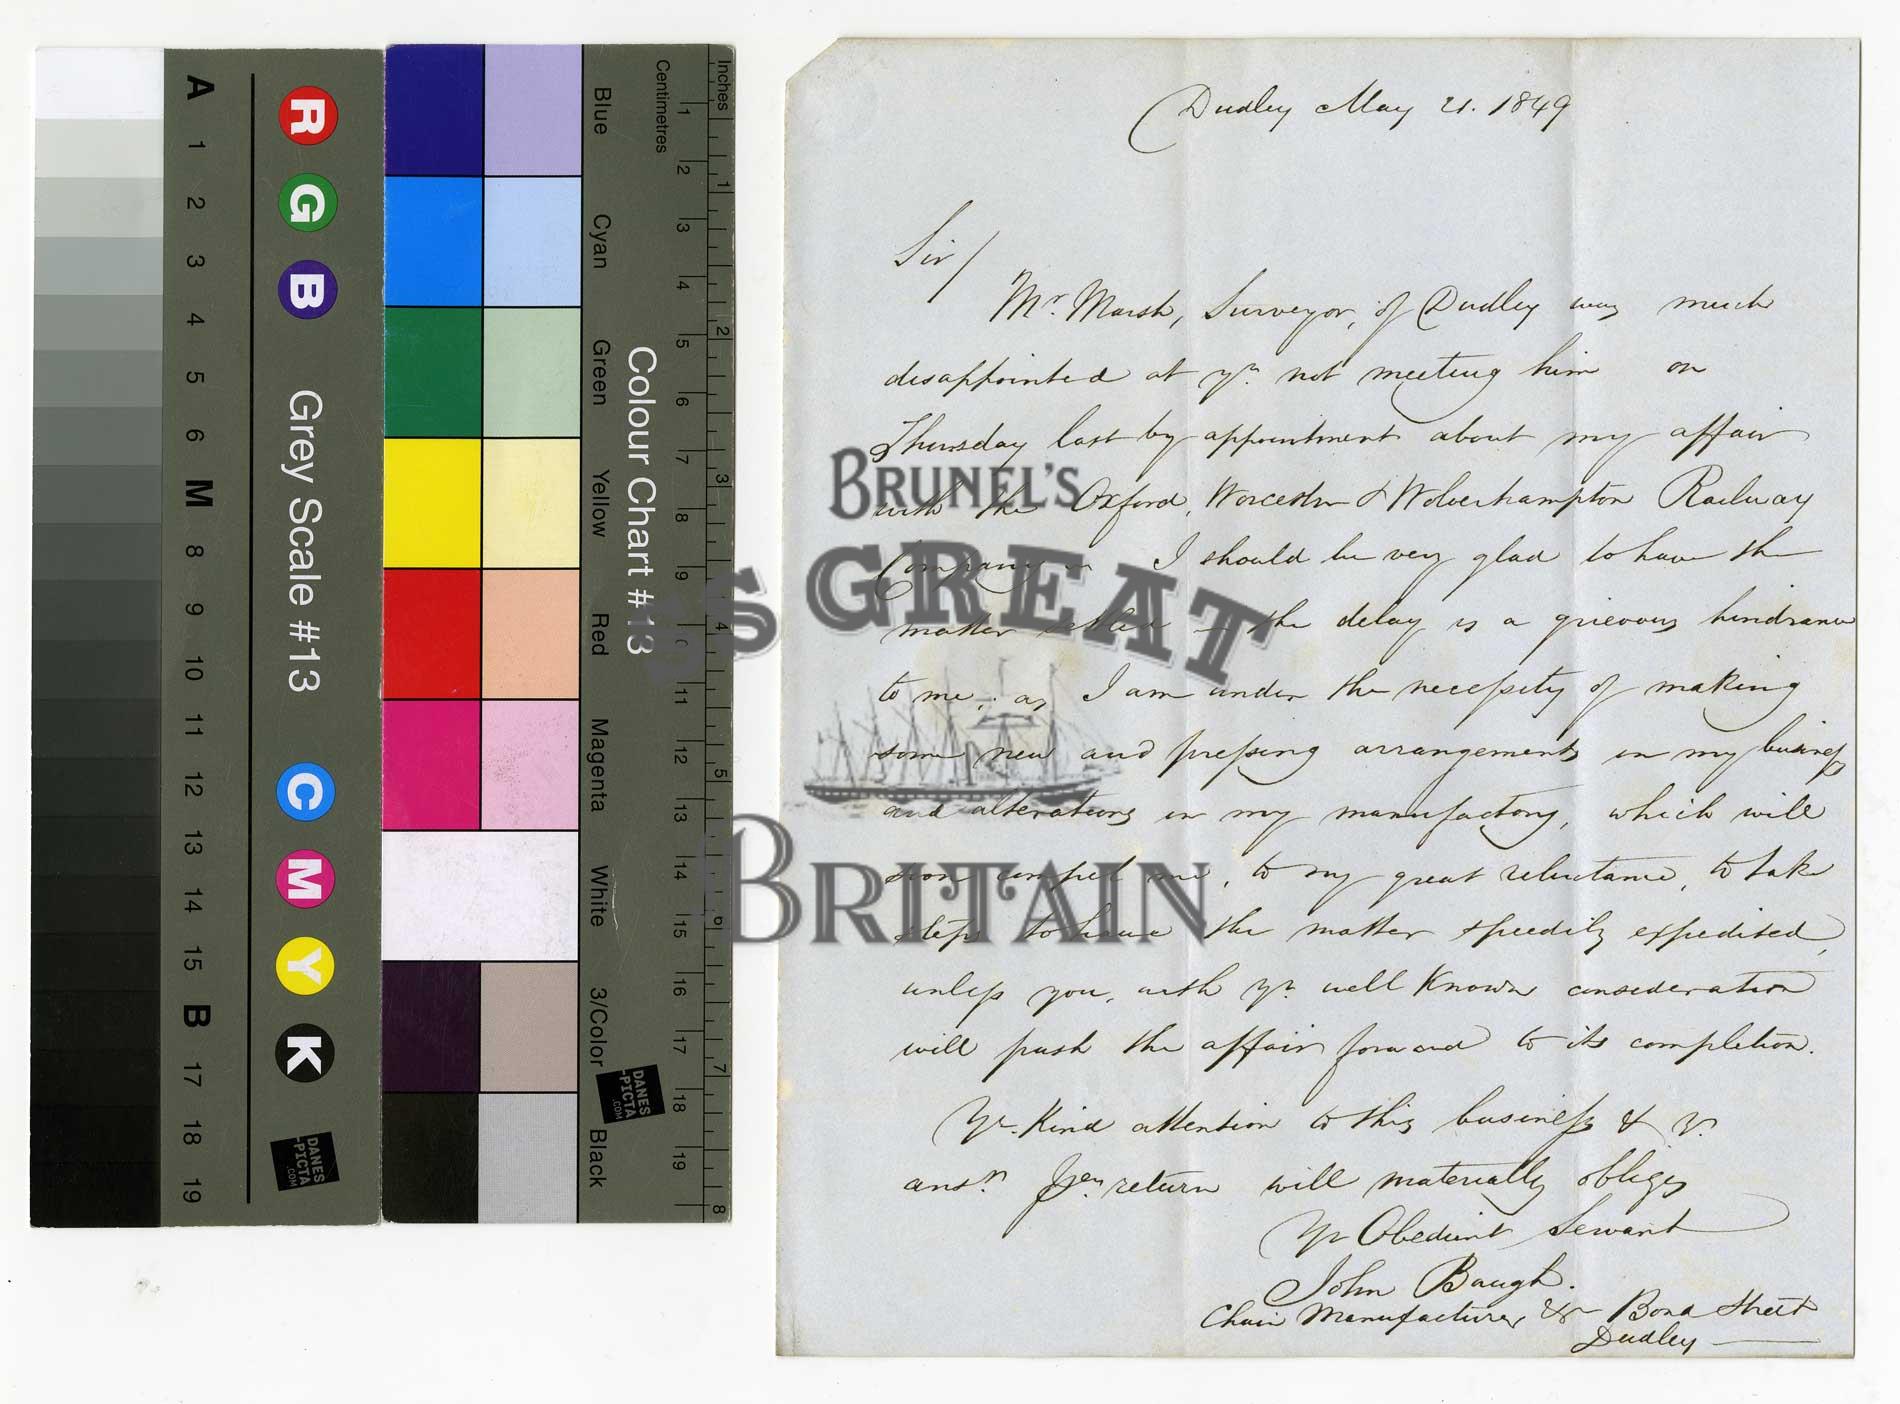 A 1 2 3 4 5 6 M 8 9 10 11 12 13 14 15 B 17 18 19
R G B
Grey Scale #13
C M Y K
DANES
-PICTA
.COM
Blue Cyan Green Yellow Red Magenta White 3/Color Black
Colour Chart #13
DANES
-PICTA
.COM
Centimetres 1 2 3 4 5 6 7 8 9 10 11 12 13 14 15 16 17 18 19
Inches 1 2 3 4 5 6 7 8
Dudley May 21. 1849
Sir/
Mr. Marsh, Surveyor, of Dudley was much
disappointed at yr. not meeting him on
Thursday last by appointment about my affair
with the Oxford, Worcester & Wolverhampton Railway
Company I should be very glad to have the
matter settled – the delay is a grievous hindrance
to me, as I am under the necessity of making
some new and pressing arrangements in my business
and alterations in my manufactory, which will
soon compel me, to my great reluctance, to take
steps to have the matter speedily expedited,
unless you, with yr. well known consideration
will push the affair forward to its completion.
Yr. Kind attention to this business & yr.
ansr. return will materially oblige
Yr Obedient Servant
John Baugh.
Chain Manufacturer, &c Bond Street
Dudley
BRUNEL'S
SS GREAT
BRITAIN